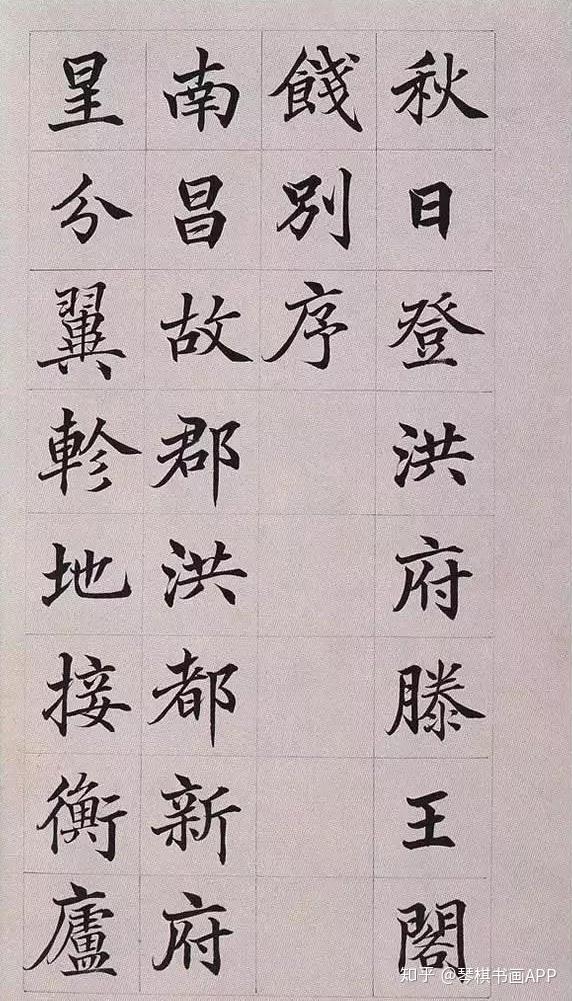 秋日登洪府滕王閣
餞別序
南昌故郡洪都新府
星分翼軫地接衡廬
知乎 @琴棋书画APP